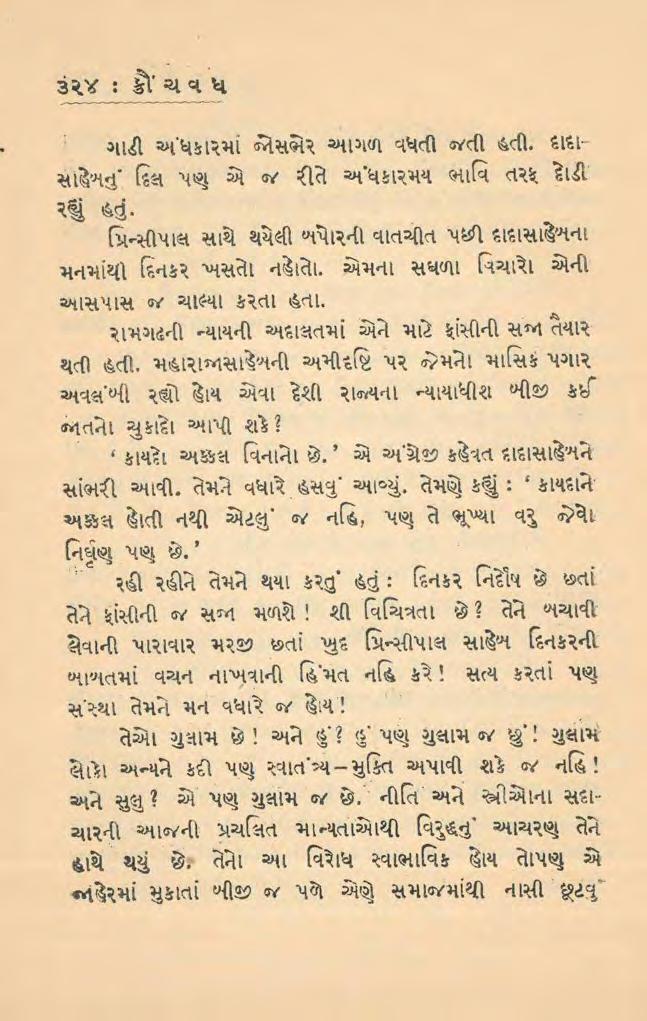 ૩૨૪ : ક્રૌંચવધ
ગાડી અંધકારમાં જોસભેર આગળ વધતી જતી હતી. દાદા-
સાહેબનું દિલ પણ એ જ રીતે અંધકારમય ભાવિ તરફ દોડી
રહ્યું હતું.
પ્રિન્સીપાલ સાથે થયેલી બપોરની વાતચીત પછી દાદાસાહેબના
મનમાંથી દિનકર ખસતો નહોતો. એમના સઘળા વિચારો એની
આસપાસ જ ચાલ્યા કરતા હતા.
રામગઢની ન્યાયની અદાલતમાં એને માટે ફાંસીની સજા તૈયાર
થતી હતી. મહારાજાસાહેબની અમીદષ્ટિ પર જેમનો માસિક પગાર
અવલંબી રહ્યો હોય એવા દેશી રાજ્યના ન્યાયાધીશ બીજી કઈ
જાતનો ચુકાદો આપી શકે?
‘ કાયદો અક્કલ વિનાનો છે.’ એ અંગ્રેજી કહેવત દાદાસાહેબને
સાંભરી આવી. તેમને વધારે હસવું આવ્યું. તેમણે કહ્યું : ‘ કાયદાને
અક્કલ હોતી નથી એટલું જ નહિ, પણ તે ભૂખ્યા વરુ જેવો
નિર્ઘૃણ પણ છે.’
રહી રહીને તેમને થયા કરતું હતું : દિનકર નિર્દોષ છે છતાં
તેને ફાંસીની જ સજા મળશે ! શી વિચિત્રતા છે? તેને બચાવી
લેવાની પારાવાર મરજી છતાં ખુદ પ્રિન્સીપાલ સાહેબ દિનકરની
બાબતમાં વચન નાખવાની હિંમત નહિ કરે! સત્ય કરતાં પણ
સંસ્થા તેમને મન વધારે જ હોય!
તેઓ ગુલામ છે! અને હું? હું પણ ગુલામ જ છું! ગુલામ
લોકો અન્યને કદી પણ સ્વાતંત્ર્ય–મુક્તિ અપાવી શકે જ નહિ!
અને સુલુ? એ પણ ગુલામ જ છે. નીતિ અને સ્ત્રીઓના સદા-
ચારની આજની પ્રચલિત માન્યતાઓથી વિરુદ્ધનું આચરણ તેને
હાથે થયું છે. તેનો આ વિરોધ સ્વાભાવિક હોય તોપણ એ
જાહેરમાં મુકાતાં બીજી જ પળે એણે સમાજમાંથી નાસી છૂટવું